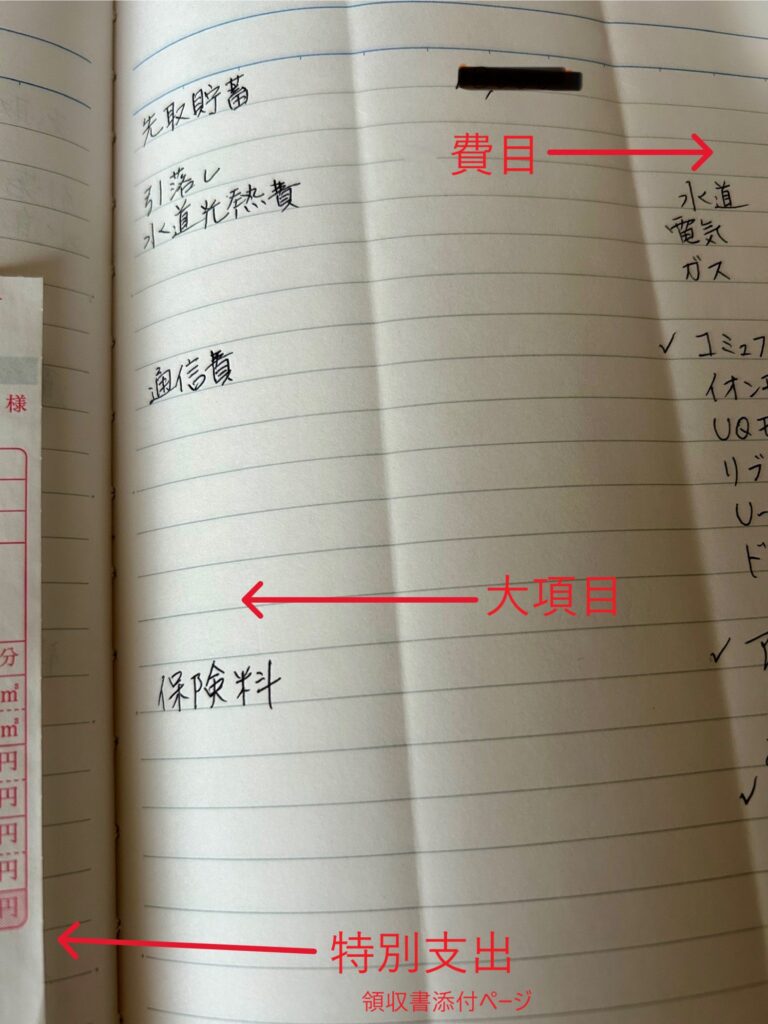 先取貯蓄
費目
引落し
水道光熱費
水道
電気
ガス
通信費
コミュフ
イオン
UQモ
リブ
U-
ド
大項目
保険料
様
分
m³
m³
円
円
円
円
円
特別支出
領収書添付ページ